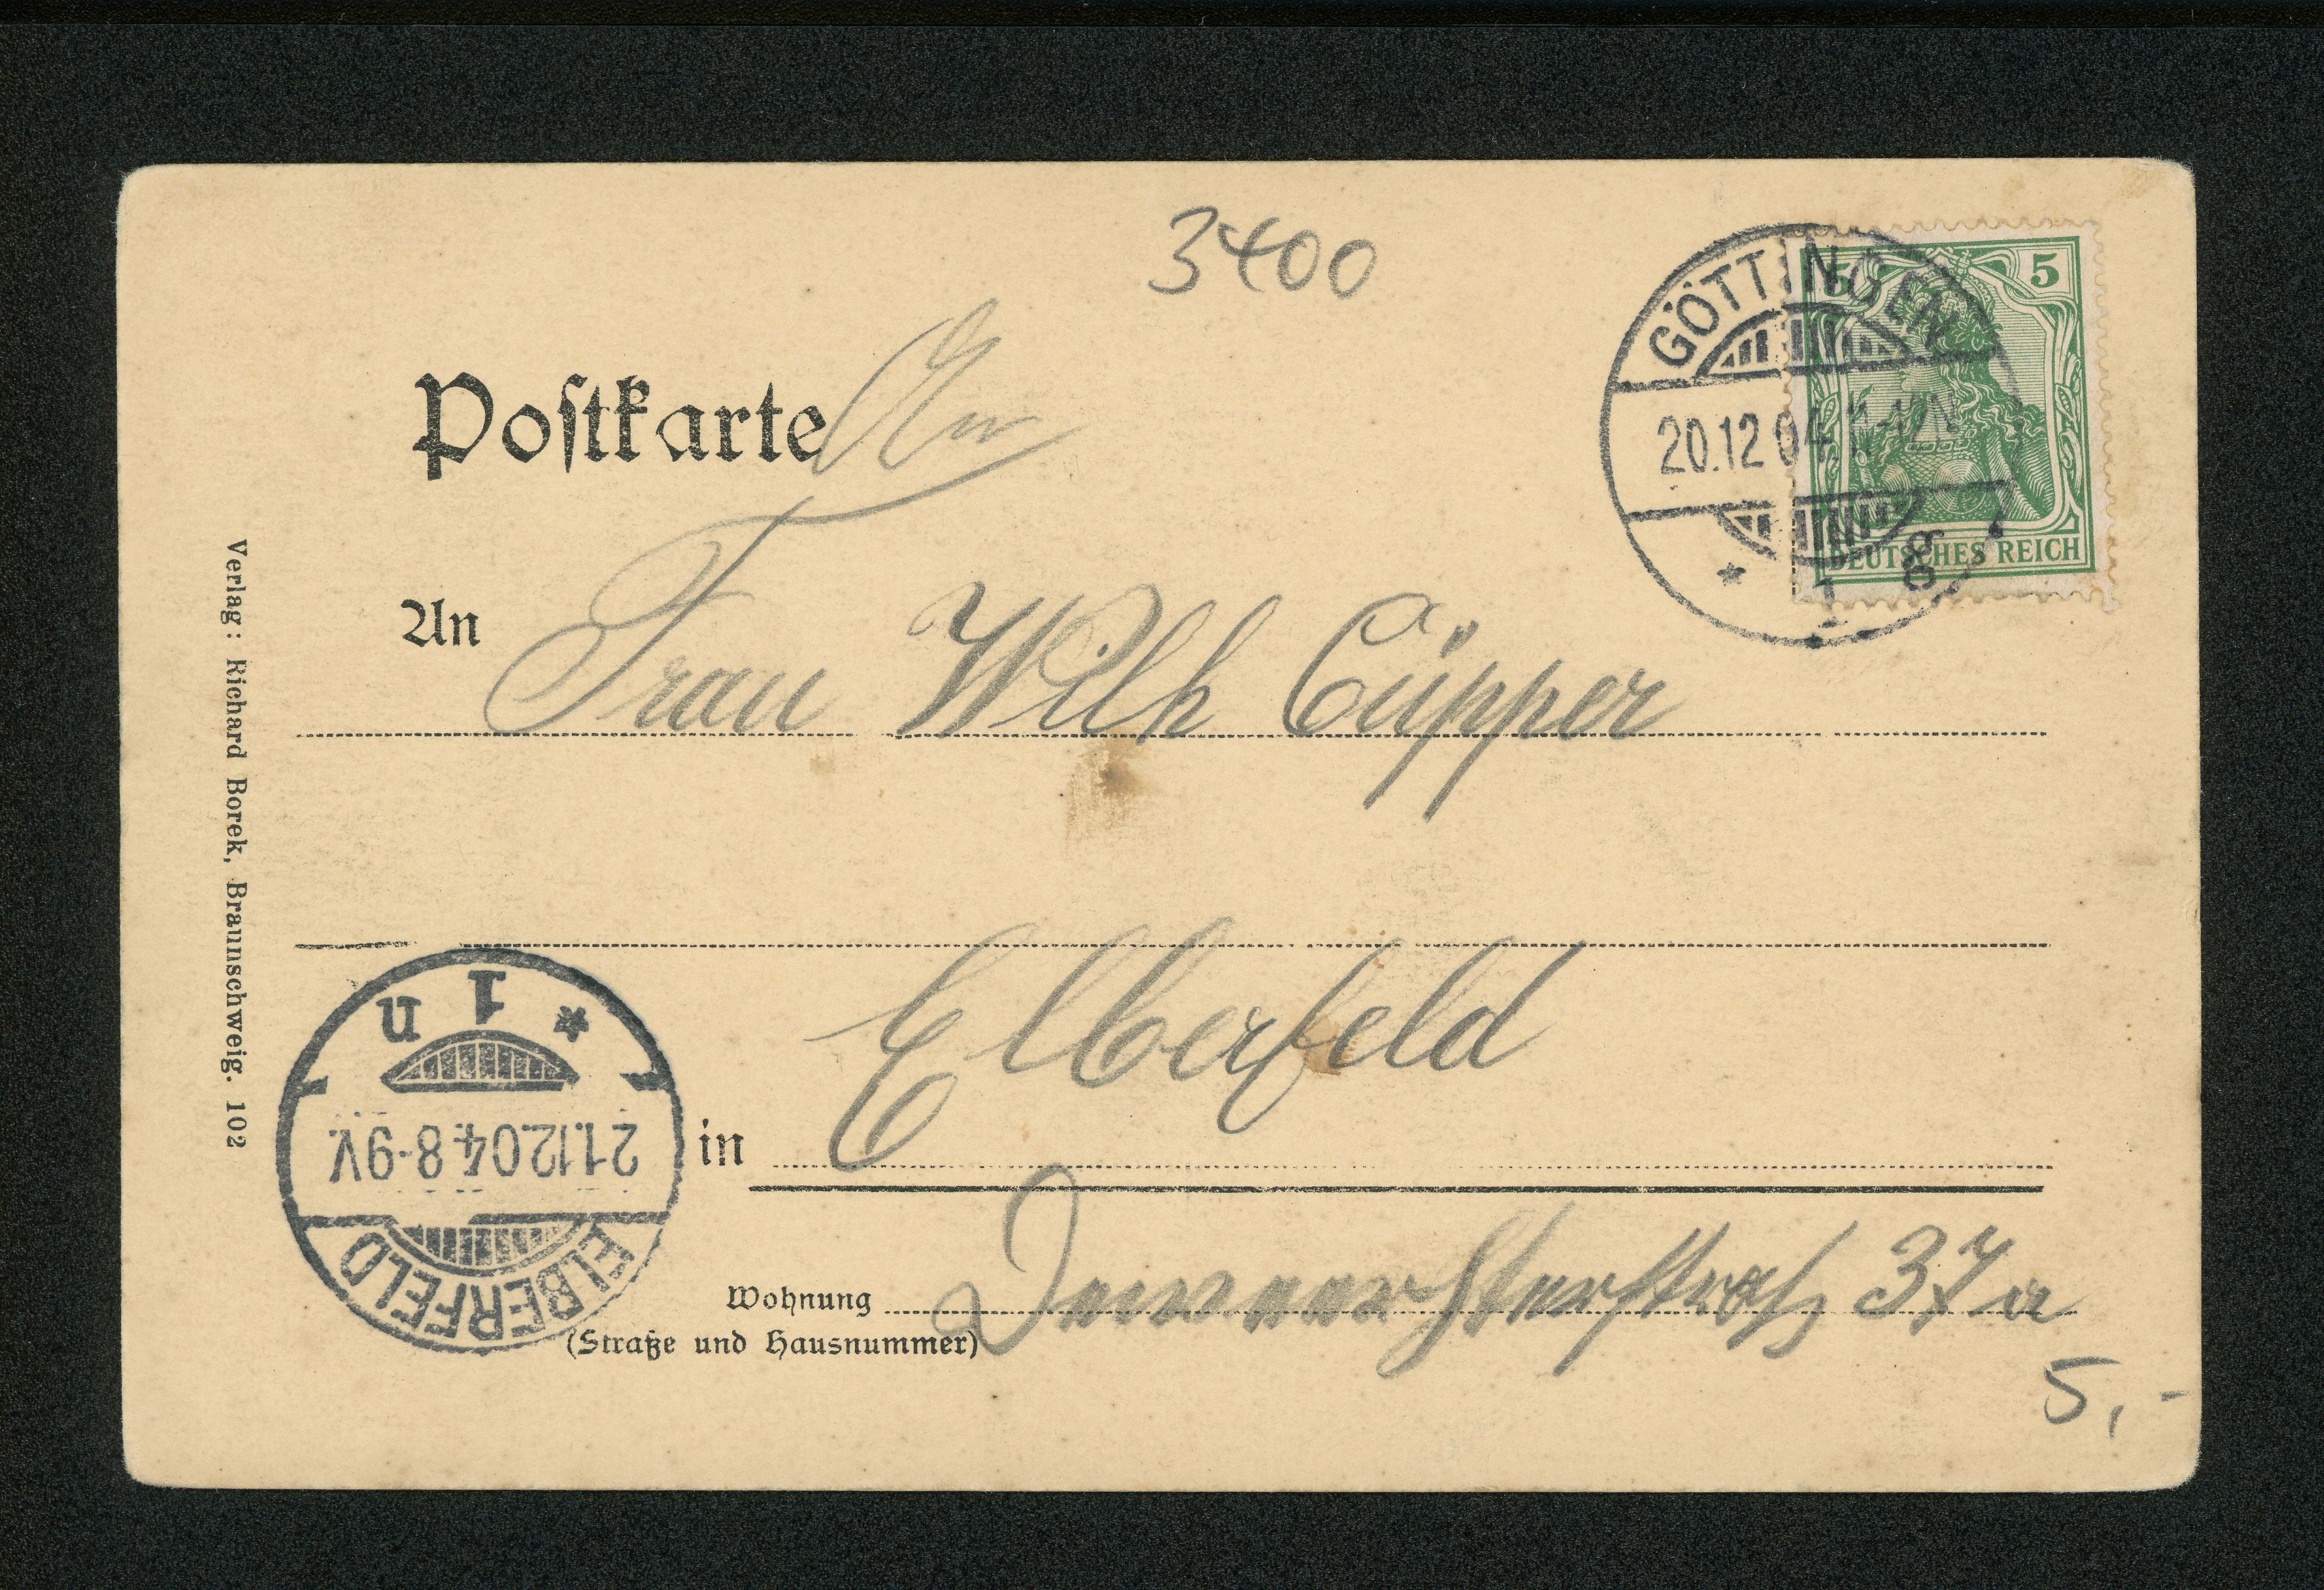 3400
Postkarte
GÖTTINGEN
20.12.04.11-12N
* 1 g
5 5
DEUTSCHES REICH
An Frau Wilh Cüpper
in Elberfeld
Wohnung 37a
(Straße und Hausnummer)
5,-
ELBERFELD
21.12.04.8-9V.
* 1 n
Verlag: Richard Borek, Braunschweig. 102